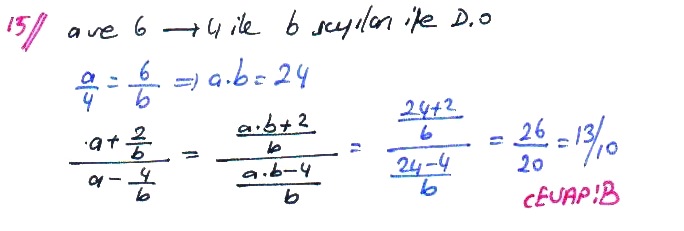 15// a ve 6 → 4 ile b sayıları ile D.O
a/4 = 6/b ⇒ a.b = 24
(a + 2/b)/(a - 4/b) = ((a.b+2)/b)/((a.b-4)/b) = ((24+2)/b)/((24-4)/b) = 26/20 = 13/10
CEVAP:B